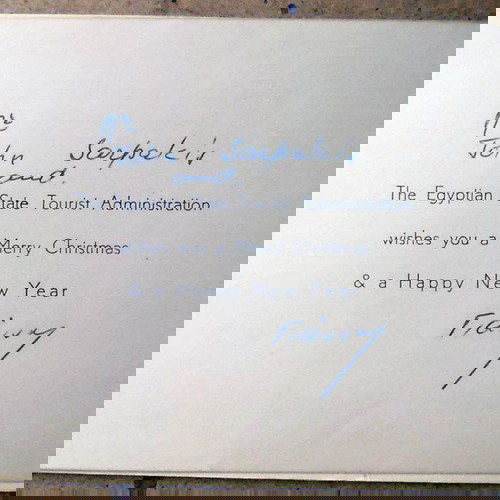 Mr
John Sarpakis
and.
The Egyptian State Tourist Administration
wishes you a Merry Christmas
& a Happy New Year